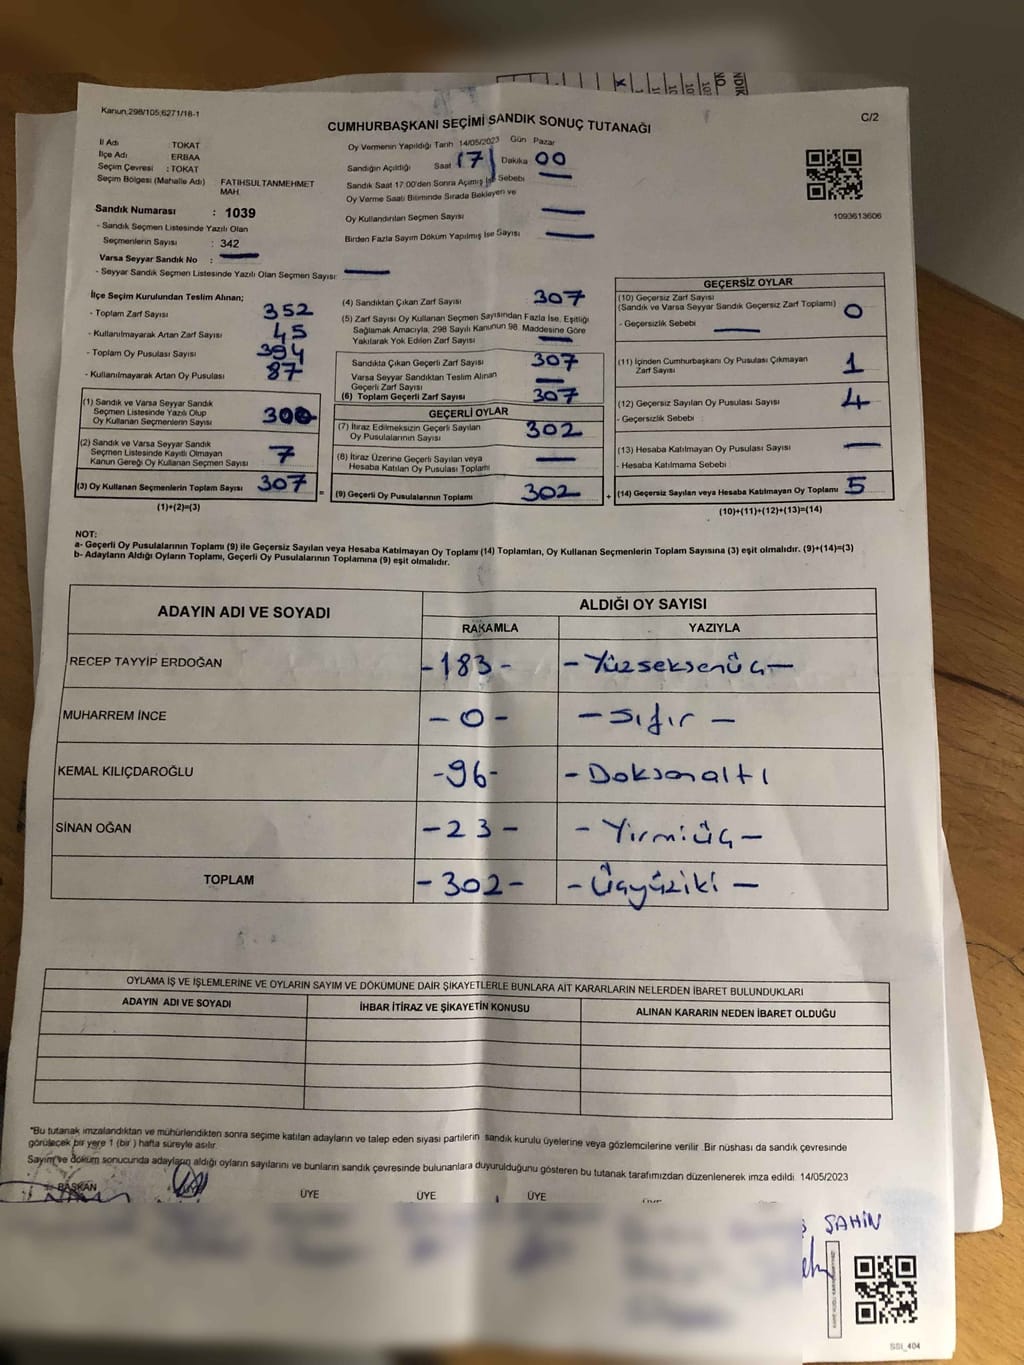 Kanun.298/105;6271/18-1
C/2
CUMHURBAŞKANI SEÇİMİ SANDIK SONUÇ TUTANAĞI
İl Adı : TOKAT
İlçe Adı : ERBAA
Seçim Çevresi : TOKAT
Seçim Bölgesi (Mahalle Adı) : FATIHSULTANMEHMET MAH.
Sandık Numarası : 1039
- Sandık Seçmen Listesinde Yazılı Olan
Seçmenlerin Sayısı : 342
Varsa Seyyar Sandık No :
- Seyyar Sandık Seçmen Listesinde Yazılı Olan Seçmen Sayısı:
Oy Vermenin Yapıldığı Tarih 14/05/2023 Gün Pazar
Sandığın Açıldığı Saat 17 Dakika 00
Sandık Saat 17:00'den Sonra Açımış İse Sebebi
Oy Verme Saati Bitiminde Sırada Bekleyen ve
Oy Kullandırılan Seçmen Sayısı
Birden Fazla Sayım Döküm Yapılmış İse Sayısı
1093613606
İlçe Seçim Kurulundan Teslim Alınan;
- Toplam Zarf Sayısı 352
- Kullanılmayarak Artan Zarf Sayısı 45
- Toplam Oy Pusulası Sayısı 394
- Kullanılmayarak Artan Oy Pusulası 87
(1) Sandık ve Varsa Seyyar Sandık
Seçmen Listesinde Yazılı Olup
Oy Kullanan Seçmenlerin Sayısı 300
(2) Sandık ve Varsa Seyyar Sandık
Seçmen Listesinde Kayıtlı Olmayan
Kanun Gereği Oy Kullanan Seçmen Sayısı 7
(3) Oy Kullanan Seçmenlerin Toplam Sayısı 307
(1)+(2)=(3)
(4) Sandıktan Çıkan Zarf Sayısı 307
(5) Zarf Sayısı Oy Kullanan Seçmen Sayısından Fazla İse, Eşitliği
Sağlamak Amacıyla, 298 Sayılı Kanunun 98. Maddesine Göre
Yakılarak Yok Edilen Zarf Sayısı
Sandıkta Çıkan Geçerli Zarf Sayısı 307
Varsa Seyyar Sandıktan Teslim Alınan
Geçerli Zarf Sayısı
(6) Toplam Geçerli Zarf Sayısı 307
GEÇERLİ OYLAR
(7) İtiraz Edilmeksizin Geçerli Sayılan
Oy Pusulalarının Sayısı 302
(8) İtiraz Üzerine Geçerli Sayılan veya
Hesaba Katılan Oy Pusulası Toplamı
=
(9) Geçerli Oy Pusulalarının Toplamı 302
+
GEÇERSİZ OYLAR
(10) Geçersiz Zarf Sayısı
(Sandık ve Varsa Seyyar Sandık Geçersiz Zarf Toplamı) 0
- Geçersizlik Sebebi
(11) İçinden Cumhurbaşkanı Oy Pusulası Çıkmayan
Zarf Sayısı 1
(12) Geçersiz Sayılan Oy Pusulası Sayısı 4
- Geçersizlik Sebebi
(13) Hesaba Katılmayan Oy Pusulası Sayısı
- Hesaba Katılmama Sebebi
(14) Geçersiz Sayılan veya Hesaba Katılmayan Oy Toplamı 5
(10)+(11)+(12)+(13)=(14)
NOT:
a- Geçerli Oy Pusulalarının Toplamı (9) ile Geçersiz Sayılan veya Hesaba Katılmayan Oy Toplamı (14) Toplamları, Oy Kullanan Seçmenlerin Toplam Sayısına (3) eşit olmalıdır. (9)+(14)=(3)
b- Adayların Aldığı Oyların Toplamı, Geçerli Oy Pusulalarının Toplamına (9) eşit olmalıdır.
ADAYIN ADI VE SOYADI ALDIĞI OY SAYISI
RAKAMLA YAZIYLA
RECEP TAYYİP ERDOĞAN -183- -Yüzseksenüç-
MUHARREM İNCE -0- -Sıfır-
KEMAL KILIÇDAROĞLU -96- -Doksanaltı
SİNAN OĞAN -23- -Yirmiüç-
TOPLAM -302- -Üçyüziki-
OYLAMA İŞ VE İŞLEMLERİNE VE OYLARIN SAYIM VE DÖKÜMÜNE DAİR ŞİKAYETLERLE BUNLARA AİT KARARLARIN NELERDEN İBARET BULUNDUKLARI
ADAYIN ADI VE SOYADI İHBAR İTİRAZ VE ŞİKAYETİN KONUSU ALINAN KARARIN NEDEN İBARET OLDUĞU
*Bu tutanak imzalandıktan ve mühürlendikten sonra seçime katılan adayların ve talep eden siyasi partilerin sandık kurulu üyelerine veya gözlemcilerine verilir. Bir nüshası da sandık çevresinde
görülecek bir yere 1 (bir) hafta süreyle asılır.
Sayım ve döküm sonucunda adayların aldığı oyların sayılarını ve bunların sandık çevresinde bulunanlara duyurulduğunu gösteren bu tutanak tarafımızdan düzenlenerek imza edildi. 14/05/2023
BAŞKAN ÜYE ÜYE ÜYE ÜYE
ŞAHİN
SSI_404